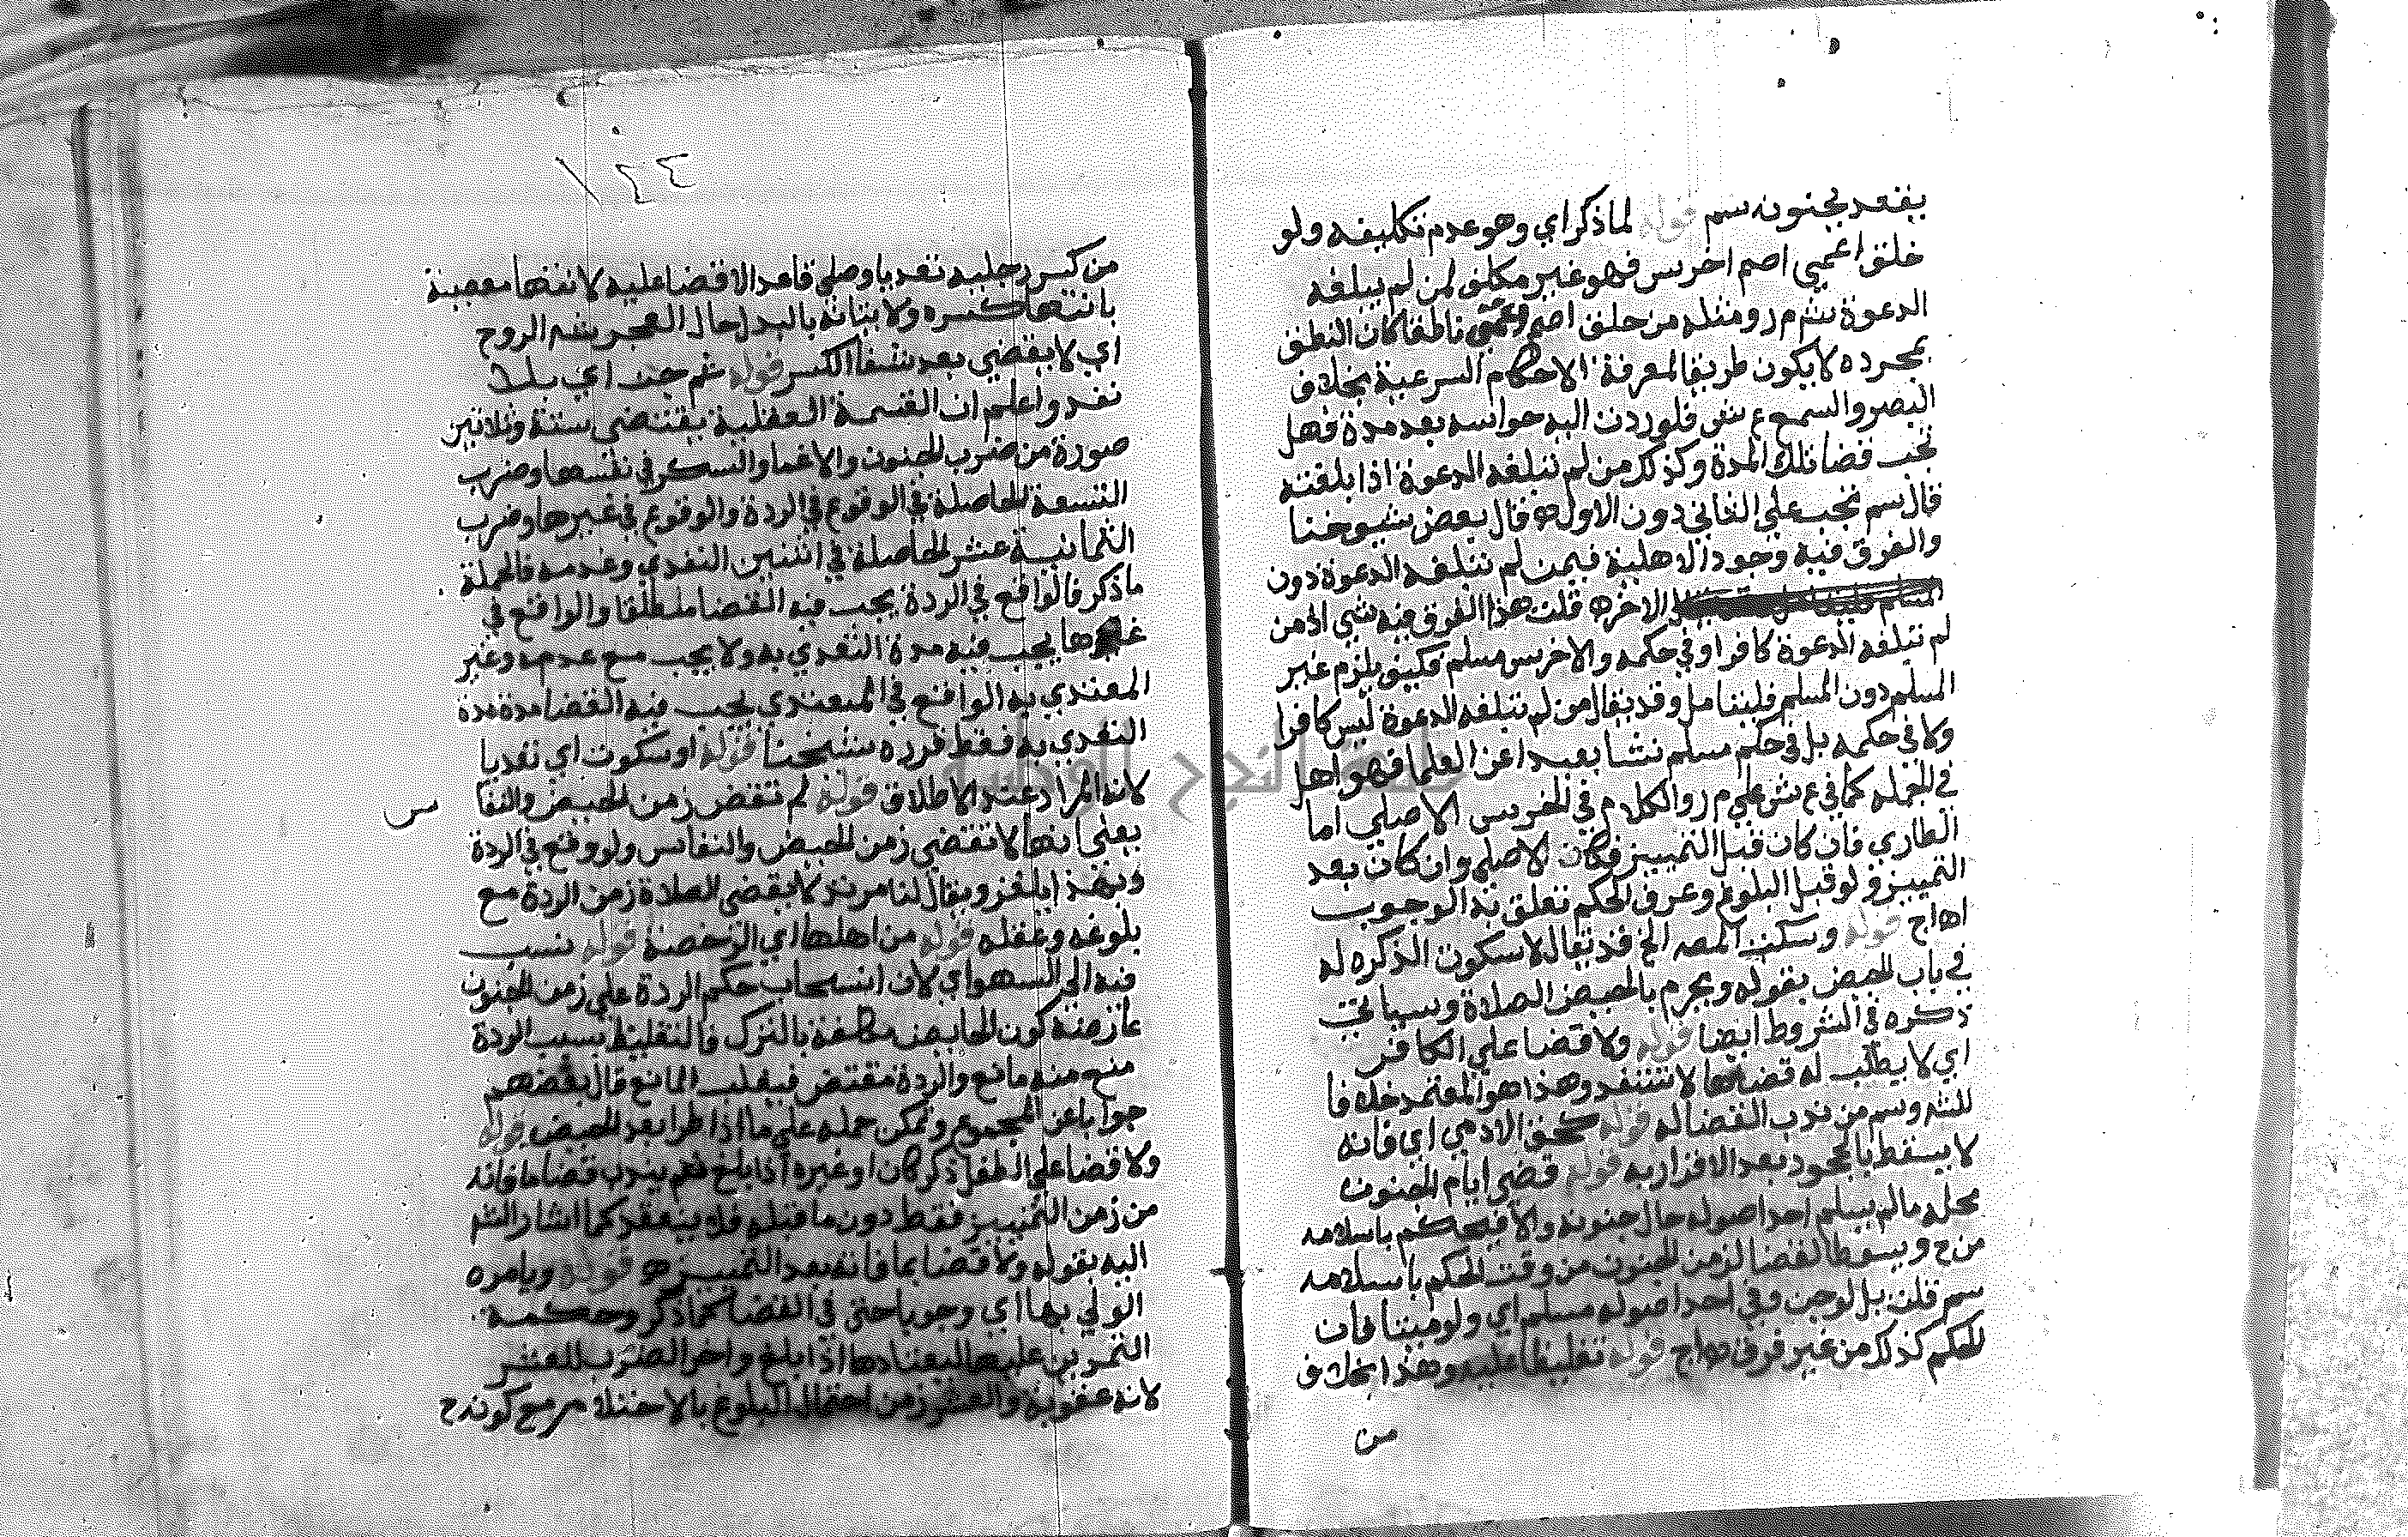 يفقد بجنونه سم قوله لما ذكر اي وهو عدم تكليفه ولو
خلق اعمي اصم اخرس فهو غير مكلف لمن لم يبلغه
الدعوة ش م ر ومثله من خلق اصم اعمي ناطقا كان النطق
بمجرده لا يكون طريقا لمعرفة الاحكام الشرعية بخلاف
البصر والسمع ع ش فلو ردت اليه حواسه بعد مدة فهل
تجب قضا تلك المدة وكذلك من لم تبلغه الدعوة اذا بلغته
قال سم تجب علي الثاني دون الاول اه قال بعض شيوخنا
والفرق فيه وجود الاهلية فيمن لم تبلغه الدعوة دون
الاخر اه قلت هذا الفرق فيه شي اذ من
لم تبلغه الدعوة كافر او في حكمه والاخرس مسلم فكيف يلزم غير
المسلم دون المسلم فليتامل وقد يقال من لم تبلغه الدعوة ليس كافرا
ولا في حكمه بل في حكم مسلم نشا بعيدا عن العلما فهو اهل
في الجمله كما في ع ش علي م ر والكلام في الخرس الاصلي اما
الطاري فان كان قبل التمييز فكان الاصلي وان كان بعد
التمييز ولو قبل البلوغ وعرف الحكم تعلق به الوجوب
اه اج قوله وسكت المصه الخ قد يقال لا سكوت لذكره له
في باب الحيض بقوله ويحرم بالحيض الصلاة وسياتي
ذكره في الشروط ايضا قوله ولا قضا علي الكافر
اي لا يطلب له قضاها لا تنعقد وهذا هو المعتمد خلافا
للشر وسم من ندب القضا له قوله كحق الادمي اي فانه
لا يسقط بالجحود بعد الاقرار به قوله قضي ايام الجنون
محله ما لم يسلم احد اصوله حال جنونه والا فيحكم باسلامه
من ح ويسقط القضا لزمن الجنون من وقت الحكم باسلامه
سم قلت بل لو جن وفي احد اصوله مسلم اي ولو ميتا فان
الحكم كذلك من غير فرق اه اج قوله تغليظا عليه وهذا بخلاف
من
١٢٤
من كسر رجليه تعديا وصلي قاعدا لا قضا عليه لانتها معصيته
بانتها كسره ولاتيانه بالبدل حال العجز بشه الروح
اي لا يقضي بعد شفا الكسر قوله ثم جن اي بلا
تعد واعلم ان القسمة العقلية تقتضي ستة وثلاثين
صورة من ضرب الجنون والاغما والسكر في نفسها وضرب
التسعة الحاصلة في الوقوع في الردة والوقوع في غيرها وضرب
الثمانية عشر الحاصلة في اثنين التعدي وعدمه فالجملة
ما ذكر فالواقع في الردة يجب فيه القضا مطلقا والواقع في
غيرها يجب فيه مدة التعدي به ولا يجب مع عدمه وغير
المعتدي به الواقع في المتعدي يجب فيه القضا مدة مدة
التعدي به فقط قرره شيخنا قوله او سكوت اي تعديا
لانه المراد عند الاطلاق قوله لم تقض زمن الحيض والنفا
س
يعني انها لا تقضي زمن الحيض والنفاس ولو وقع في الردة
وبهذا يلغز ويقال لنا مرتد لا يقضي الصلاة زمن الردة مع
بلوغه وعقله قوله من اهلها اي الرخصة قوله نسب
فيه الي السهو اي لان انسحاب حكم الردة علي زمن الجنون
عارضه كون الحايض مكلفة بالترك فالتغليظ بسبب الردة
منع منه مانع والردة مقتض فيغلب المانع قال بعضهم
جوابا عن المجموع ويمكن حمله علي ما اذا طرا بعد الحيض قوله
ولا قضا علي الطفل ذكر كان او غيره اذا بلغ نعم يندب قضا ما فاته
من زمن التمييز فقط دون ما قبله فلا ينعقد كما اشار الشر
اليه بقوله ولا قضا بما فاته بعد التمييز اه قوله ويامره
الولي بها اي وجوبا حتي في القضا كما ذكر وحكمة
التمرين عليها ليعتادها اذا بلغ واخر الضرب للعشر
لانه عقوبة والعشر زمن احتمال البلوغ بالاحتلام مع كونه ح